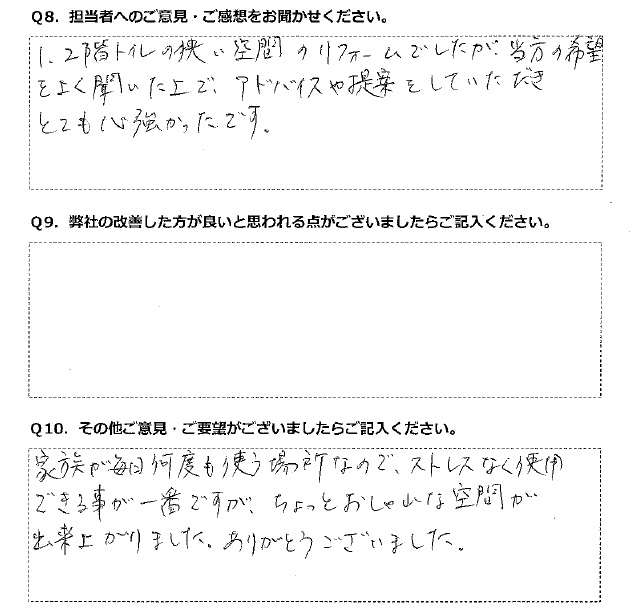 Q8. 担当者へのご意見・ご感想をお聞かせください。
1、2階トイレの狭い空間のリフォームでしたが、当方の希望
をよく聞いた上で、アドバイスや提案をしていただき
とても心強かったです。
Q9. 弊社の改善した方が良いと思われる点がございましたらご記入ください。
Q10. その他ご意見・ご要望がございましたらご記入ください。
家族が毎日何度も使う場所なので、ストレスなく使用
できる事が一番ですが、ちょっとおしゃれな空間が
出来上がりました。ありがとうございました。